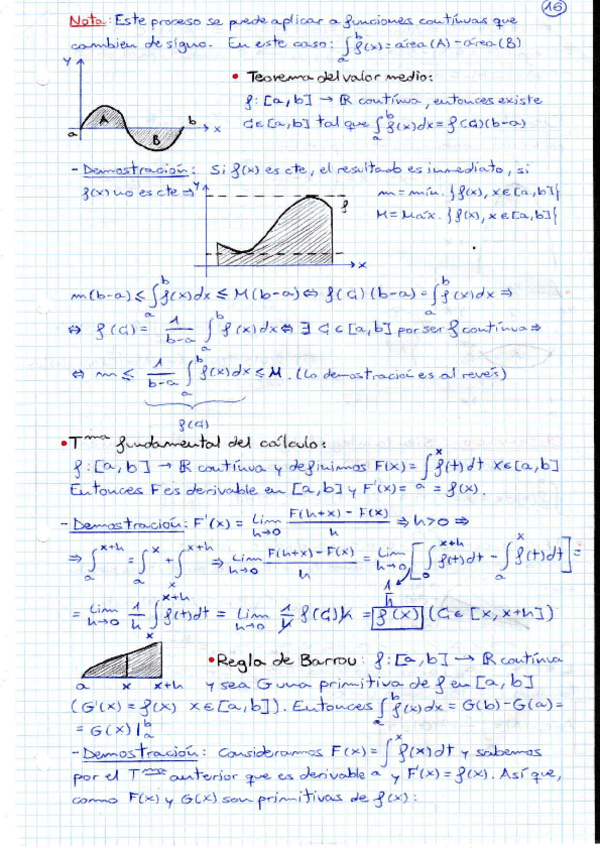 16
Nota: Este proceso se puede aplicar a funciones contínuas que
cambien de signo. En este caso: ∫_a^b f(x) = área(A) - área(B)
Y
A
B
a
b
x
• Teorema del valor medio:
f: [a,b] → ℝ contínua, entonces existe
G∈[a,b] tal que ∫_a^b f(x)dx = f(G)(b-a)
- Demostración: Si f(x) es cte, el resultado es inmediato, si
f(x) no es cte ⇒
Y
f
x
m = mín. {f(x), x∈[a,b]}
M = Máx. {f(x), x∈[a,b]}
m(b-a) ≤ ∫_a^b f(x)dx ≤ M(b-a) ⇔ f(G)(b-a) = ∫_a^b f(x)dx ⇒
⇔ f(G) = 1/(b-a) ∫_a^b f(x)dx ⇔ ∃ G∈[a,b] por ser f contínua ⇒
⇔ m ≤ 1/(b-a) ∫_a^b f(x)dx ≤ M. (La demostración es al revés)
f(G)
• Tᵐᵃ fundamental del cálculo:
f: [a,b] → ℝ contínua y definimos F(x) = ∫_a^x f(t)dt x∈[a,b]
Entonces F es derivable en [a,b] y F'(x) = = f(x).
- Demostración: F'(x) = Lim_{h→0} (F(h+x) - F(x))/h ⇒ h>0 ⇒
⇒ ∫_a^{x+h} = ∫_a^x + ∫_x^{x+h} ⇒ Lim_{h→0} (F(h+x) - F(x))/h = Lim_{h→0} [∫_0^{x+h} f(t)dt - ∫_a^x f(t)dt] =
1/h
= Lim_{h→0} 1/h ∫_x^{x+h} f(t)dt = Lim_{h→0} 1/h f(G)h = f(x) (G∈[x,x+h])
a x x+h
• Regla de Barrou: f: [a,b] → ℝ contínua
y sea G una primitiva de f en [a,b]
(G'(x) = f(x) x∈[a,b]). Entonces ∫_a^b f(x)dx = G(b) - G(a) =
= G(x)|_a^b
- Demostración: Consideramos F(x) = ∫_a^x f(x)dt y sabemos
por el Tᵐᵃ anterior que es derivable y F'(x) = f(x). Así que,
como F(x) y G(x) son primitivas de f(x):